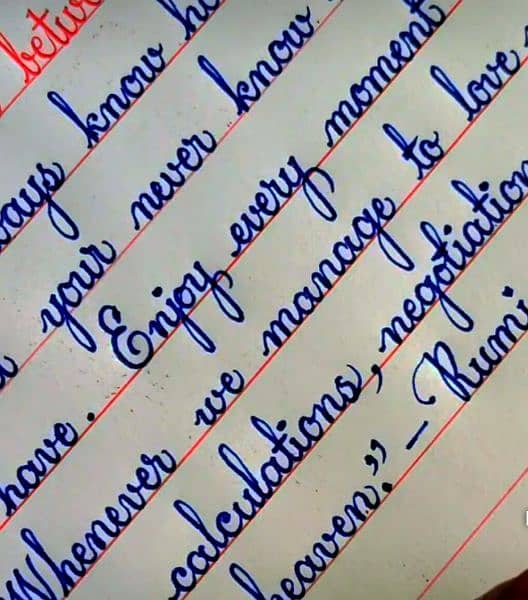 ways know
your never know
have. Enjoy every moment
Whenever we manage to love
calculations, negotiation
heaven." – Rumi